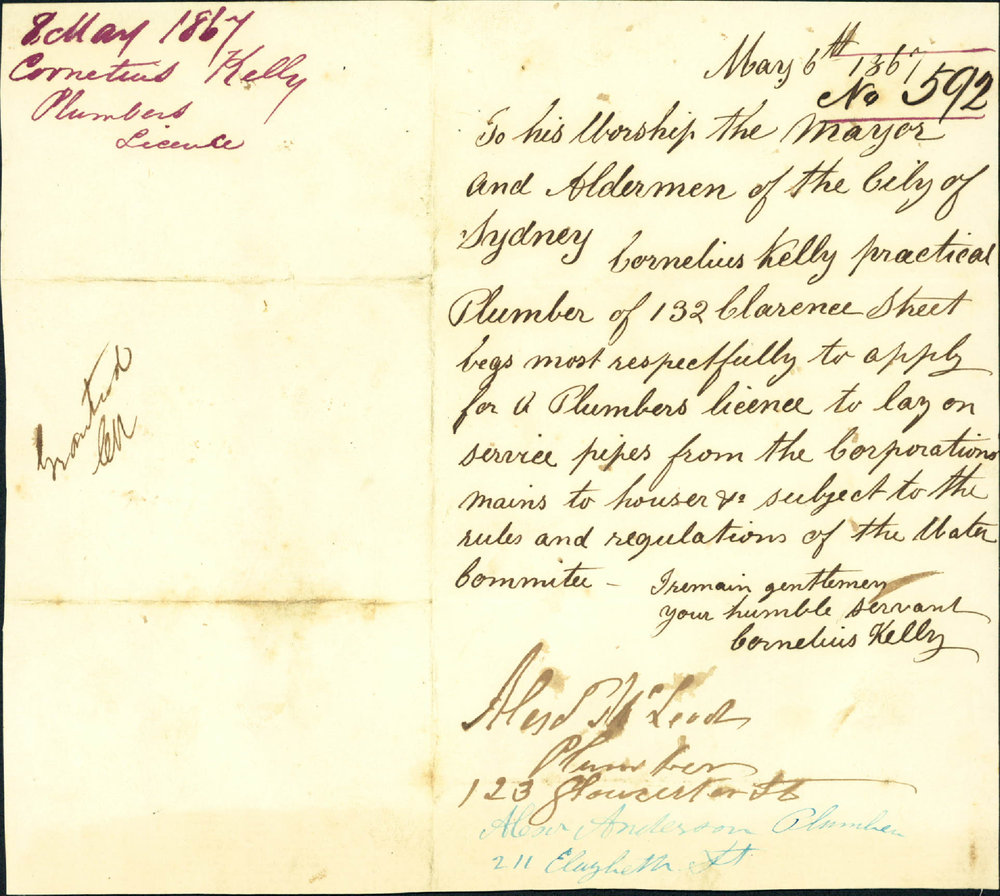 8 May 1867
Cornelius Kelly
Plumbers
Licence
Granted
May 6th 1867
No 592
To his Worship the Mayor
and Aldermen of the City of
Sydney
Cornelius Kelly practical
Plumber of 132 Clarence Street
begs most respectfully to apply
for a Plumbers licence to lay on
service pipes from the Corporations
mains to houses &c subject to the
rules and regulations of the Water
Commitee –
I remain gentlemen
your humble servant
Cornelius Kelly
Alexd McLeod
Plumber
123 Gloucester St
Alexr Anderson Plumber
211 Elazbeth St